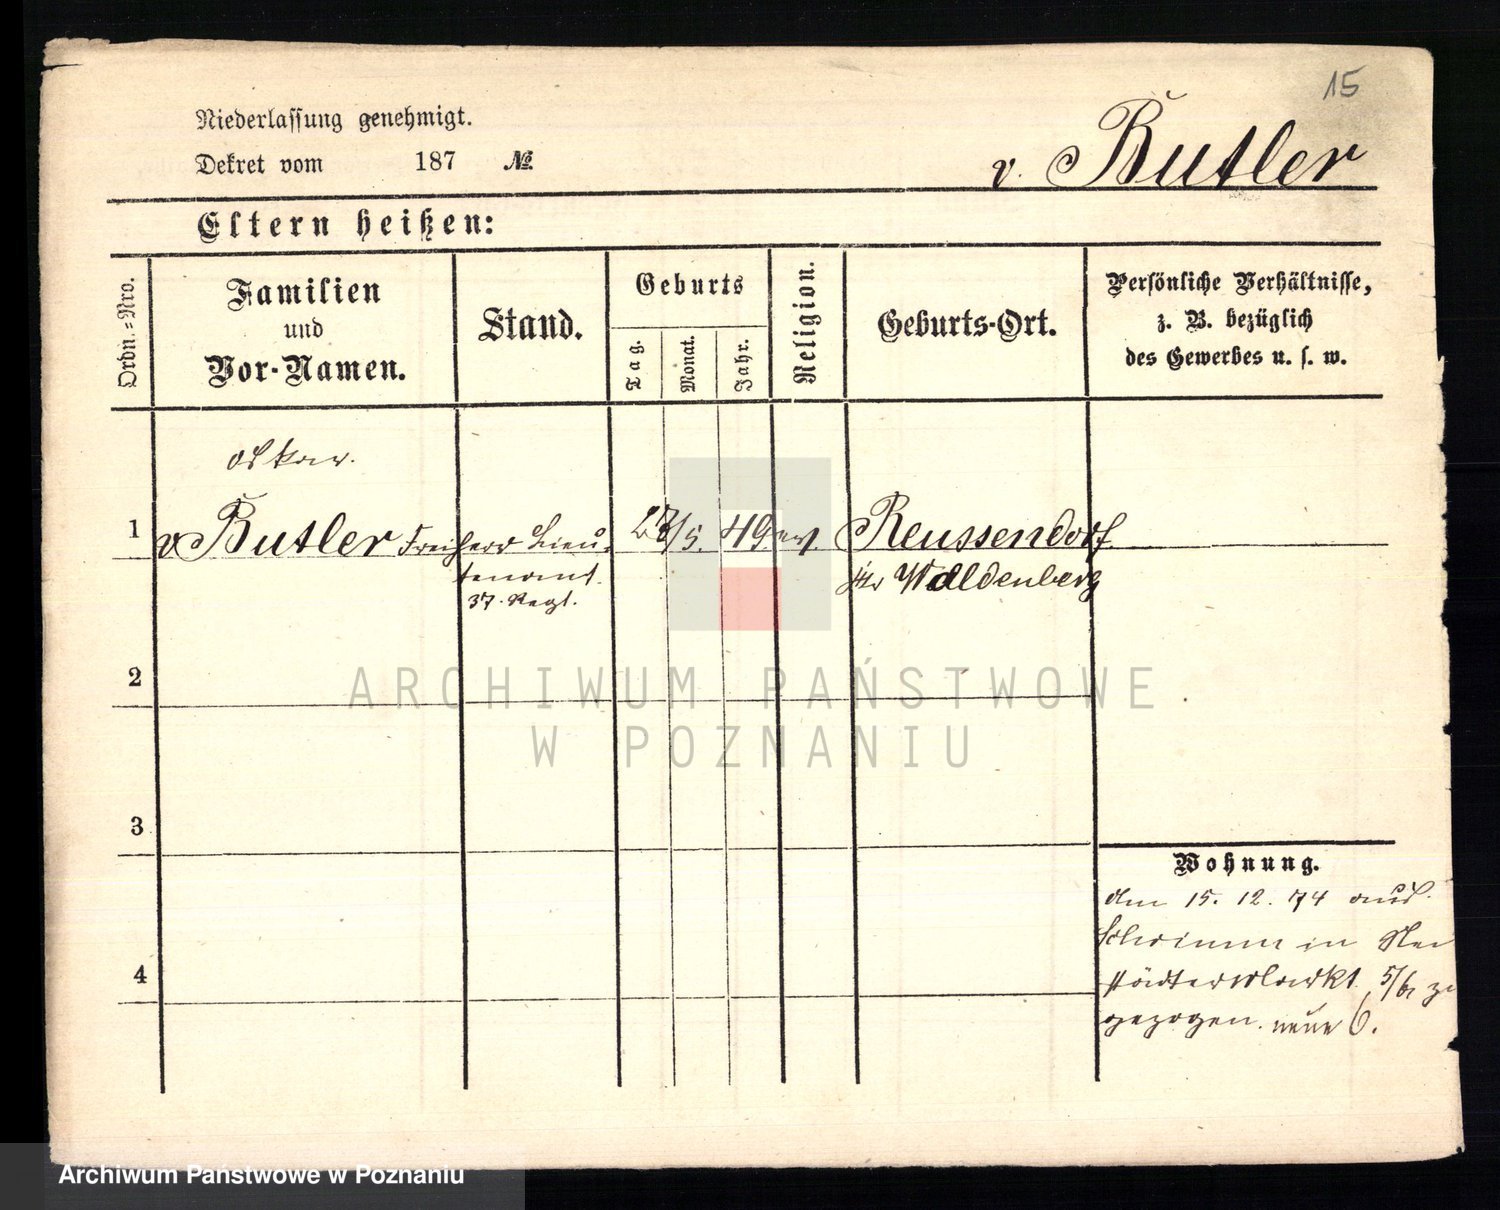 15
Niederlassung genehmigt.
Dekret vom 187 №
v. Butler
Eltern heißen:
Ordn.-Nro.
Familien
und
Vor-Namen.
Stand.
Geburts
Tag.
Monat.
Jahr.
Religion.
Geburts-Ort.
Persönliche Verhältnisse,
z. B. bezüglich
des Gewerbes u. s. w.
Oskar.
1 v Butler Freiherr Lieu- /5. 49 ev. Reussendorf
tenant. Kr Waldenberg
37. Regt.
2
ARCHIWUM PAŃSTWOWE
W POZNANIU
3
Wohnung.
den 15. 12. 74 aus
Schrimm in Neu
städtermarkt 5/6 zu
gezogen. neue 6.
4
Archiwum Państwowe w Poznaniu